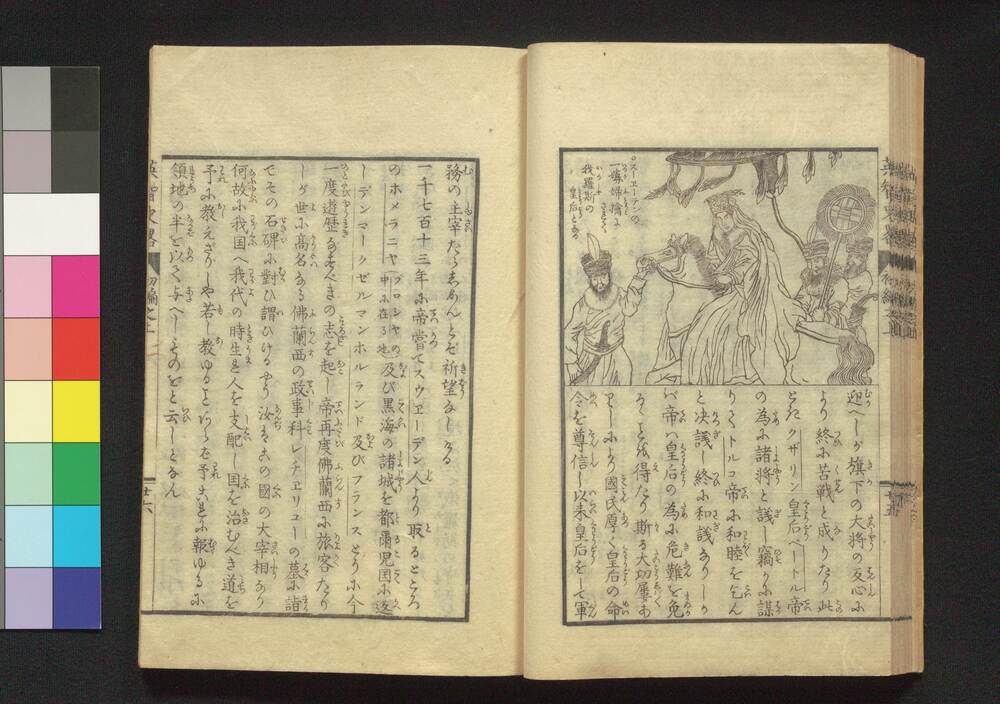 スエーデンの
一孀婦擒に
我羅斯の
皇后と為
迎へしが旗下の大将の反心に
より終に苦戦と成りたり此
ときクザリン皇后ペートル帝
の為に諸将と議し竊かに謀
りてトルコ帝に和睦をこはん
と决議し終に和議なりしか
バ帝ハ皇后の為に危難を免
るゝことを得たり斯る大切屢あ
りしにより國民厚く皇后の命
令を尊信し以来皇后をして軍
務の主宰たらしめんとを祈望なしける
一千七百十三年に帝嘗てスウヱーデン人より取るところ
のホメラニヤ(プロシヤの中に在る地)及び黒海の諸城を都爾児国に返
しデンマークゼルマンホルランド及びフランスとうに今
一度遊歴なすべきの志を起し帝再度佛蘭西に旅客たり
しが世に高名なる佛蘭西の政事科レチヱリユーの墓に詣
でその石碑に對ひ謂ひけるやう汝はこの國の大宰相なり
何故に我国へ我代の時生れ人を支配し国を治むべき道を
予に教えざりしや若し教ゆることあらば予これに報ゆるに
領地の半を以て与へしものをと云しとなん
英智史畧
初編之二
廿六
廿五